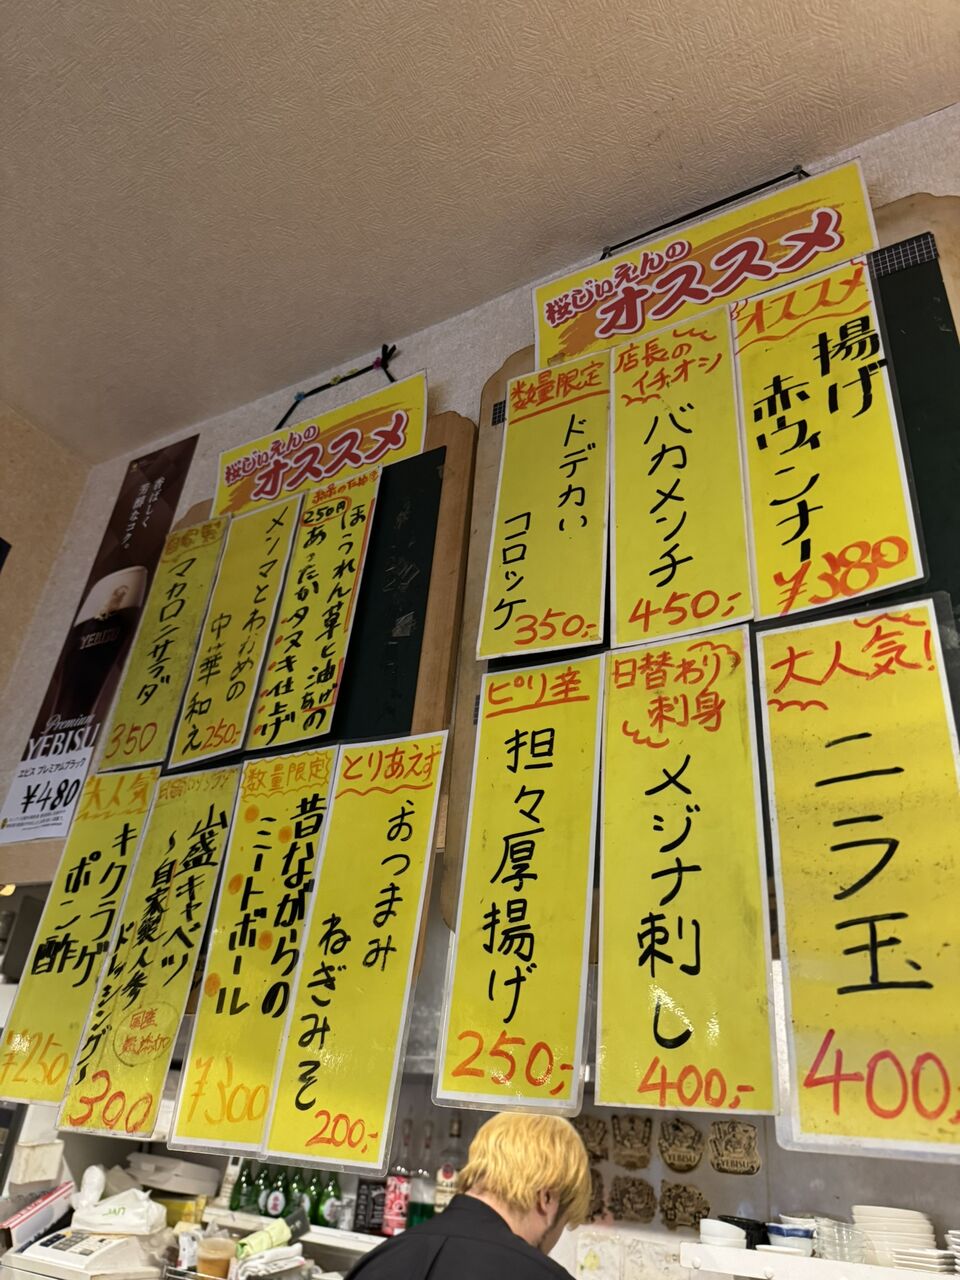 桜じぃえんの
オススメ
オススメ
揚げ
赤ウィンナー
¥380
店長の
イチオシ
バカメンチ
450,-
数量限定
ドデカい
コロッケ
350,-
大人気!
ニラ玉
400,
日替わり
刺身
メジナ刺し
400,-
ピリ辛
担々厚揚げ
250,-
桜じぃえんの
オススメ
250円
ほうれん草と油あげの
あったかタヌキ仕上げ
メンマとわかめの
中華和え
250,-
自家製
マカロニサラダ
350
とりあえず
おつまみ
ねぎみそ
200,-
数量限定
昔ながらの
ミートボール
¥300
山盛キャベツ
~自家製人参
ドレッシング~
国産
無添加
300
大人気
キクラゲ
ポン酢
¥250
香ばしく
芳醇なコク。
YEBISU
Premium
YEBISU
ヱビス プレミアムブラック
¥480
YEBISU